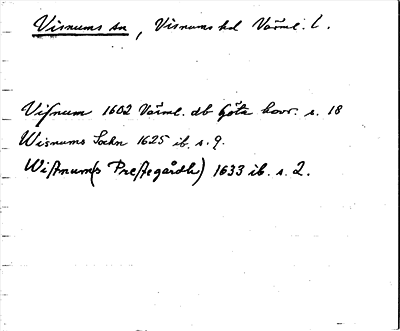 Visnums sn, Visnums hd Värml. l.
Visnum 1602 Värml. db Göta hovr. s. 18
Wisnums Sochn 1625 ib. s. 9.
Wistnum(s Prestegårdh) 1633 ib. s. 2.